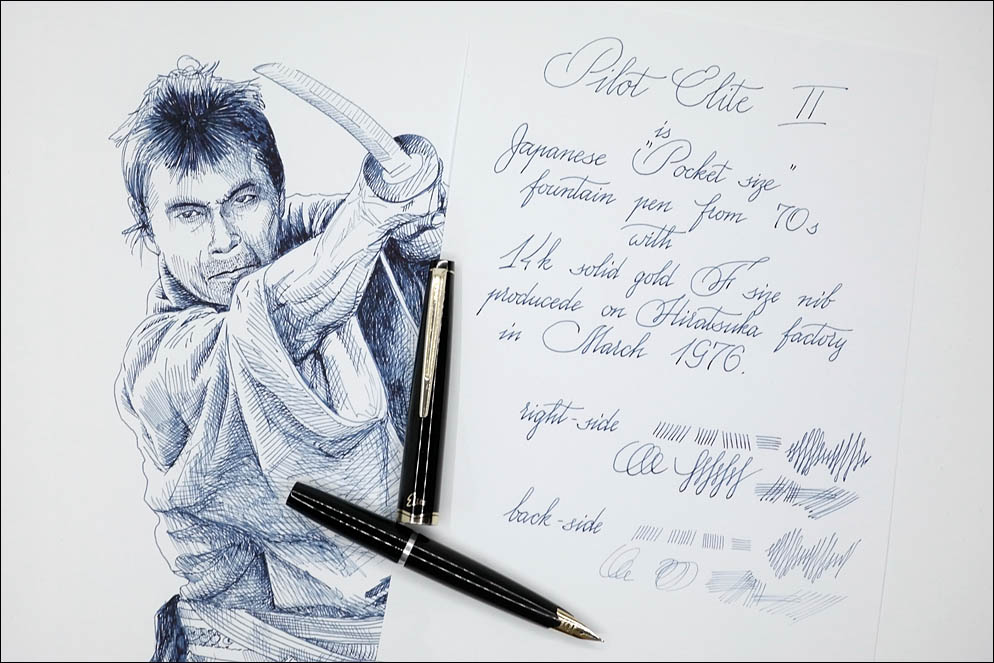 Pilot Elite II
is
Japanese "Pocket size"
fountain pen from 70s
with
14k solid gold F size nib
producede on Hiratsuka factory
in March 1976.
right-side
back-side
Elite